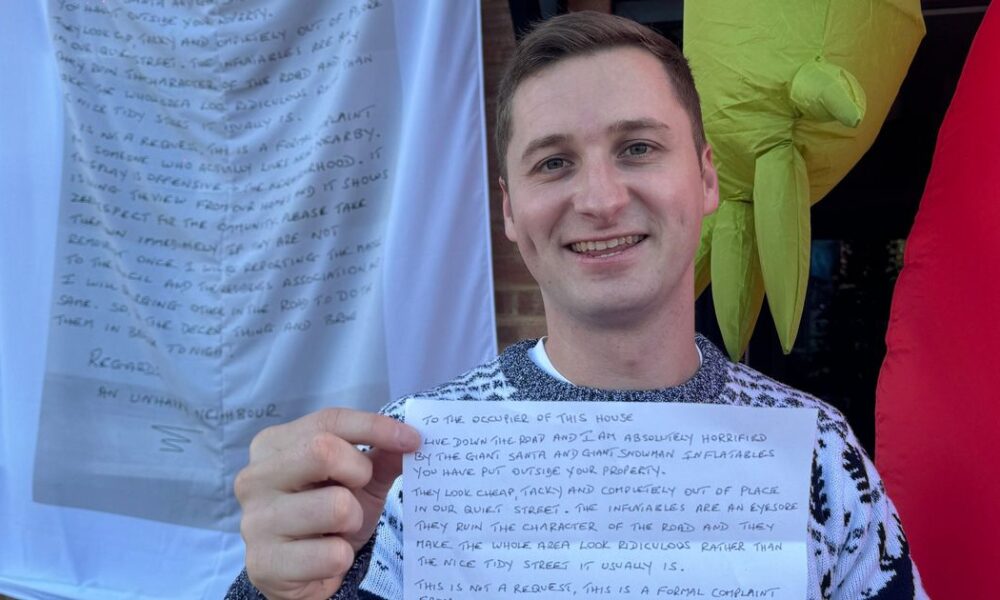 SANTA
YOU HAVE OUTSIDE YOUR
THEY LOOK TACKY AND COMPLETELY OUT OF PLACE
IN OUR QUIET STREET. THE INFLATABLES ARE
THEY RUIN THE CHARACTER OF THE ROAD AND
WHOLE AREA LOOK RIDICULOUS
NICE TIDY STREET IT USUALLY IS.
IS NOT A REQUEST, THIS IS A FORMAL
SOMEONE WHO ACTUALLY LIVES NEARBY.
DISPLAY IS OFFENSIVE IT
THE VIEW FROM OUR HOMES AND IT SHOWS
FOR THE COMMUNITY. PLEASE TAKE
IMMEDIATELY. IF ARE NOT
ONCE I WILL REPORTING THE
TO THE AND THE ASSOCIATION.
I WILL OTHER IN THE ROAD TO DO
SAME. SO THE DECENT THING AND
THEM IN TONIGHT.
REGARDS
AN NEIGHBOUR
TO THE OCCUPIER OF THIS HOUSE
I LIVE DOWN THE ROAD AND I AM ABSOLUTELY HORRIFIED
BY THE GIANT SANTA AND GIANT SNOWMAN INFLATABLES
YOU HAVE PUT OUTSIDE YOUR PROPERTY.
THEY LOOK CHEAP, TACKY AND COMPLETELY OUT OF PLACE
IN OUR QUIET STREET. THE INFLATABLES ARE AN EYESORE
THEY RUIN THE CHARACTER OF THE ROAD AND THEY
MAKE THE WHOLE AREA LOOK RIDICULOUS RATHER THAN
THE NICE TIDY STREET IT USUALLY IS.
THIS IS NOT A REQUEST, THIS IS A FORMAL COMPLAINT